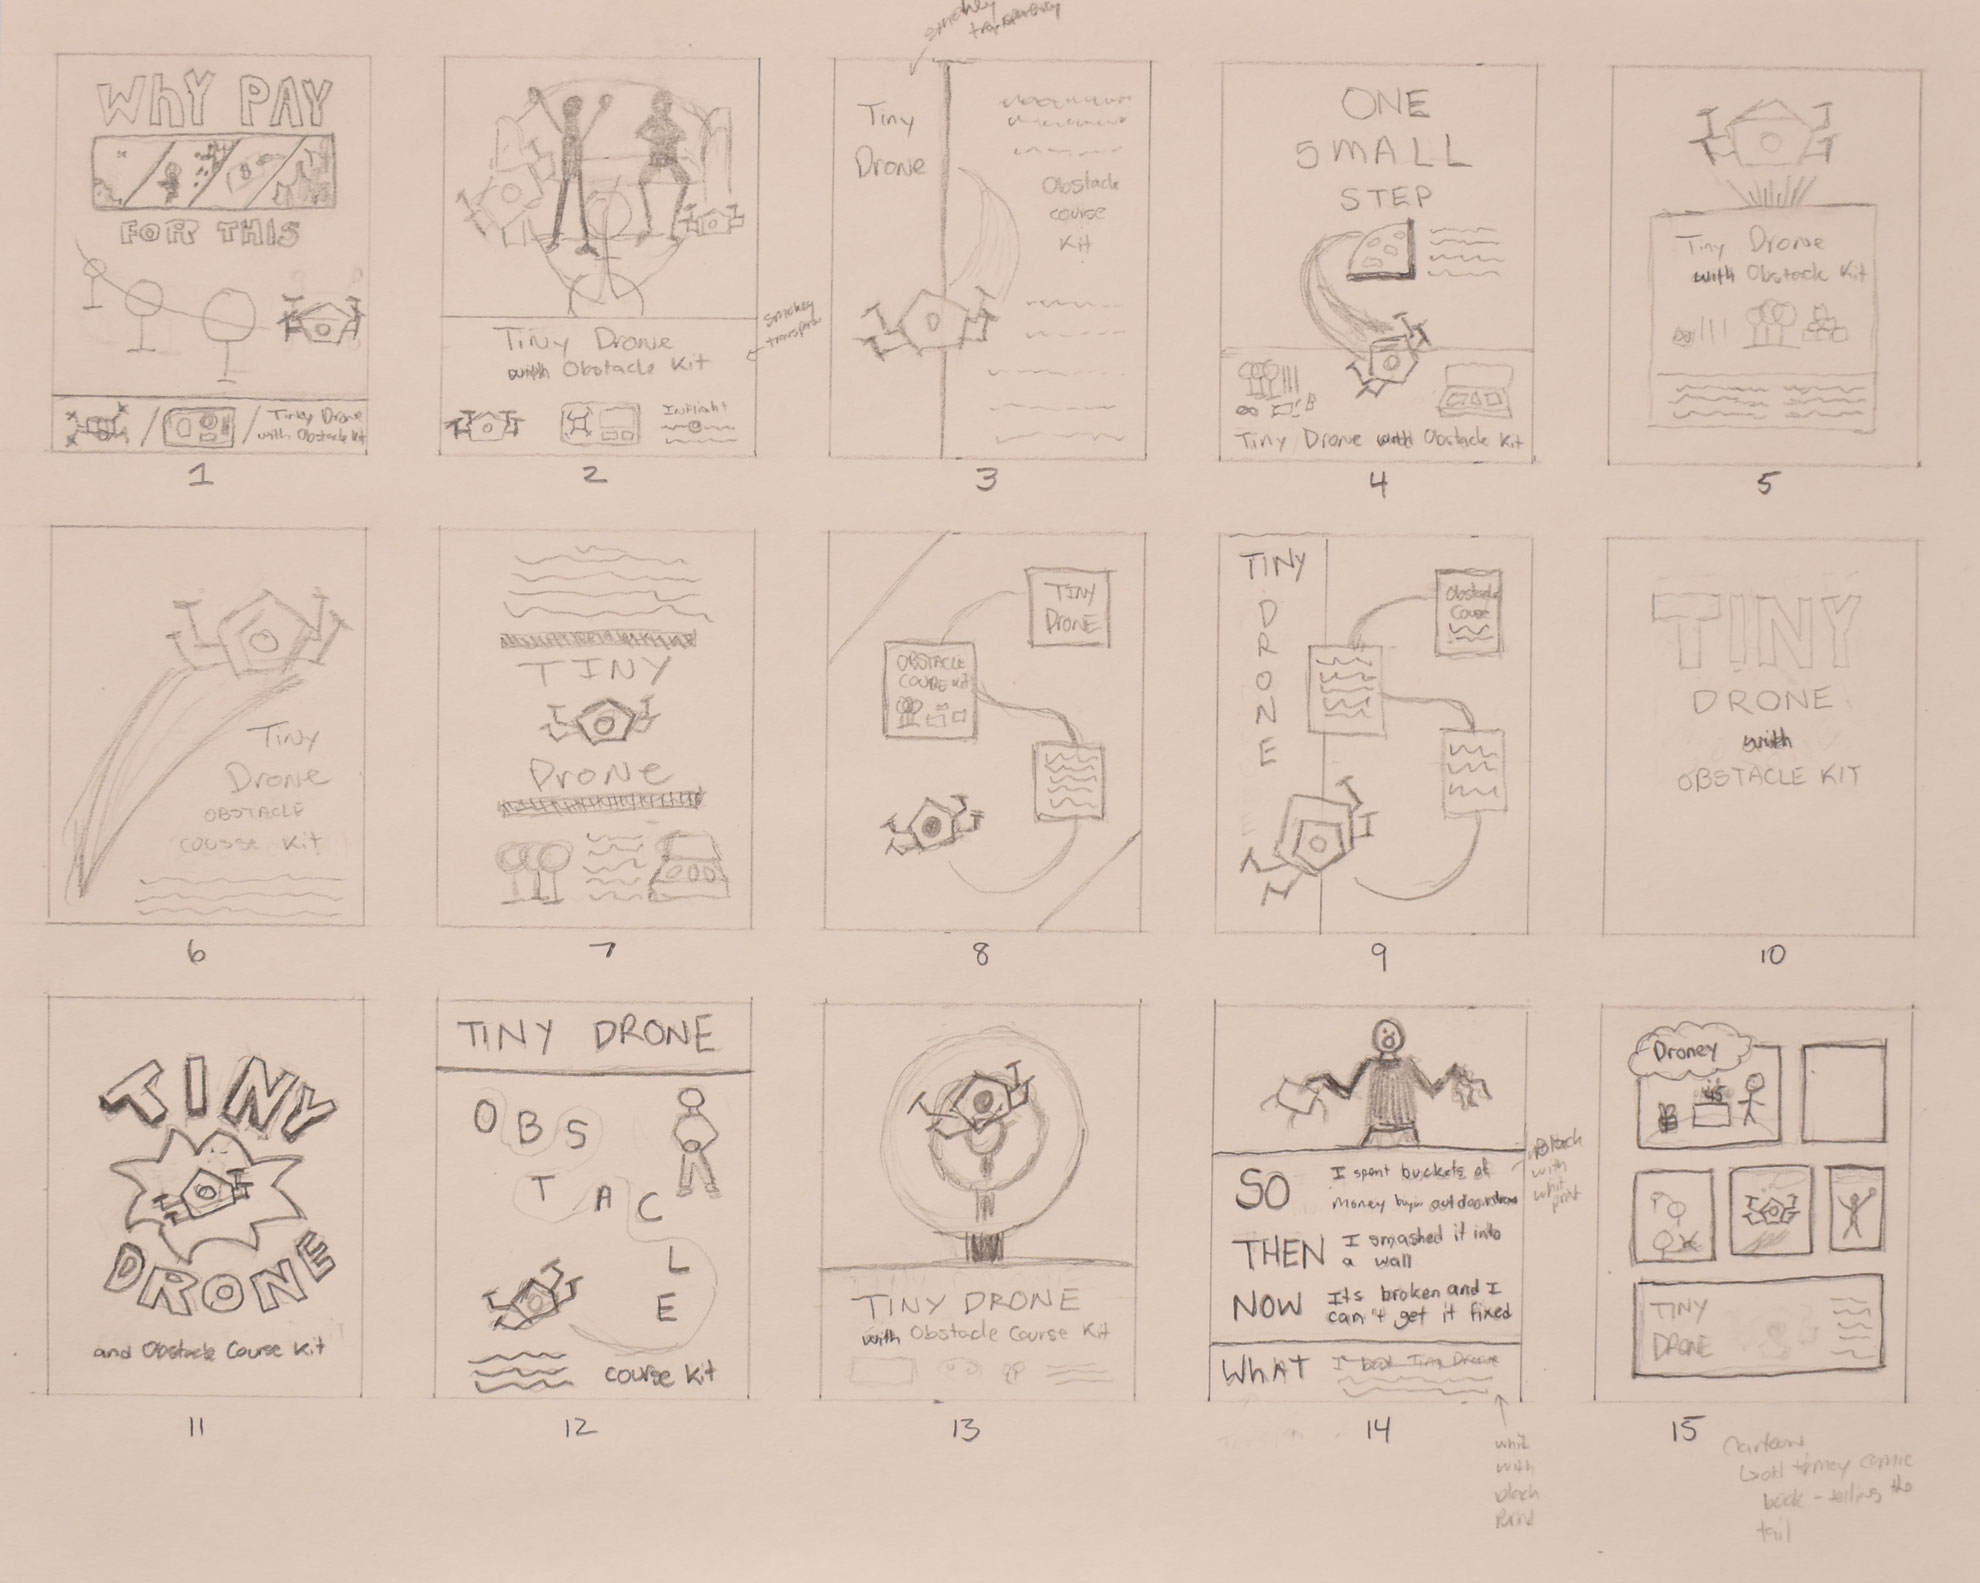 smokey
transparency
WhY PAY
FOR THIS
Tiny Drone
with Obstacle kit
1
Tiny Drone
with Obstacle Kit
Inflight
smokey
2
Tiny
Drone
Obstacle
course
Kit
3
ONE
SMALL
STEP
Tiny Drone with Obstacle Kit
4
Tiny Drone
with Obstacle Kit
5
Tiny
Drone
OBSTACLE
course Kit
6
TINY
Drone
7
TINY
Drone
OBSTACLE
COURSE Kit
8
TINY
DRONE
Obstacle
Couse
9
TINY
DRONE
with
OBSTACLE KIT
10
TINY
DRONE
and Obstacle Course Kit
11
TINY DRONE
OBS
TAC
L
E
course Kit
12
TINY DRONE
with Obstacle Course Kit
13
SO I spent buckets of
money buyin outdoor
THEN I smashed it into
a wall
NOW Its broken and I
can't get it fixed
WhAT I Tiny Drone
black
with
print
14
whit
with
black
Print
Droney
TINY
DRONE
15
comic
book - telling the
tail